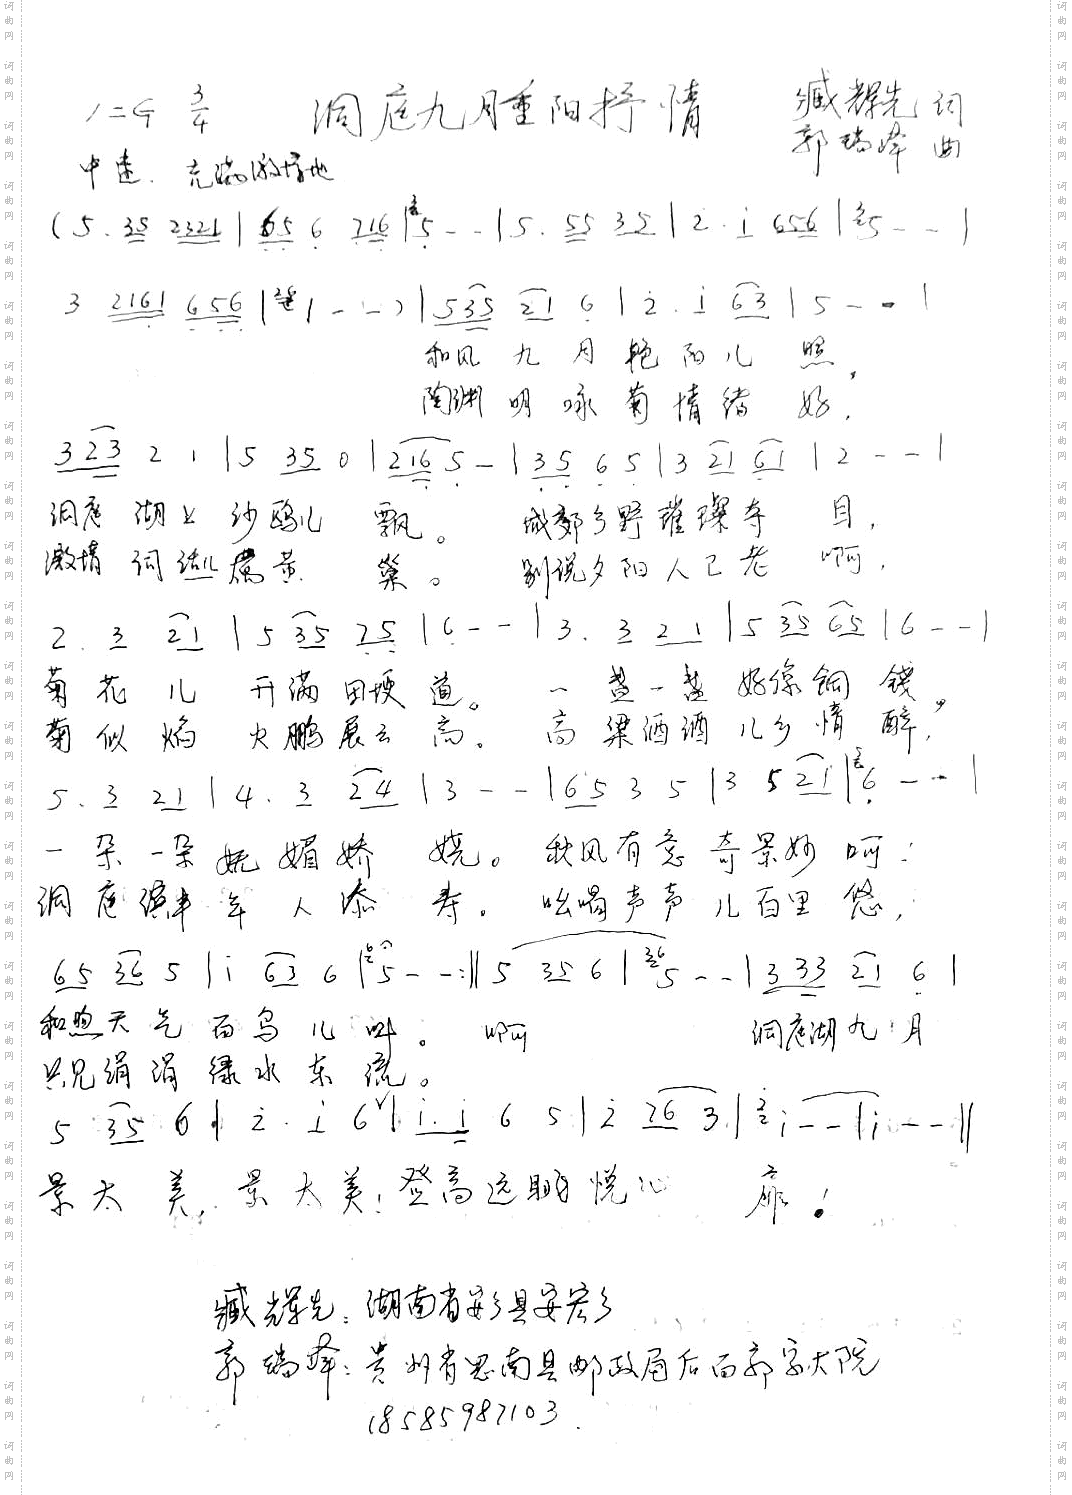 1=G 3/4 洞庭九月重阳抒情 臧辉先 词
郭瑞峰 曲
中速 充满激情地
(5. 35 2321 | 65 6 216 | 5 - - | 5. 55 35 | 2. i 656 | 5 - - |
3 2161 656 | 1 - - ) | 535 21 6 | 2. i 63 | 5 - - |
和风 九 月 艳 阳 儿 照,
陶渊 明 咏 菊 情 绪 好,
323 2 1 | 5 35 0 | 216 5 - | 35 6 5 | 3 21 61 | 2 - - |
洞庭 湖上 沙鸥儿 飘。 城郊乡野璀璨夺 目,
激情 词话儿 黄 粱。 别说夕阳人已老 啊,
2. 3 21 | 5 35 25 | 6 - - | 3. 3 2 1 | 5 35 65 | 6 - - |
菊 花 儿 开满田埂 道。 一盏一盏 好像铜 钱,
菊 似 焰 火鹏展云 高。 高粱酒酒 儿乡情 醉,
5. 3 21 | 4. 3 24 | 3 - - | 65 3 5 | 3 5 21 | 6 - - |
一朵一朵妩媚娇 娆。 秋风有意奇景妙 呵!
洞庭 年 人 添 寿。 吆喝声声儿百里 悠,
65 36 5 | i 63 6 | 5 - - :|| 5 35 6 | 5 - - | 3 33 21 6 |
和煦天气百鸟儿叫。 啊 洞庭湖九月
只见涓涓绿水东流。
5 35 6 | 2. i 6 | i. i 6 5 | 2 26 3 | i - - | i - - ||
景太 美, 景太美! 登高远眺悦心 扉!
臧辉先: 湖南省安乡县安宏乡
郭瑞峰: 贵州省思南县邮政局后面郭家大院
18585987103.
词曲网